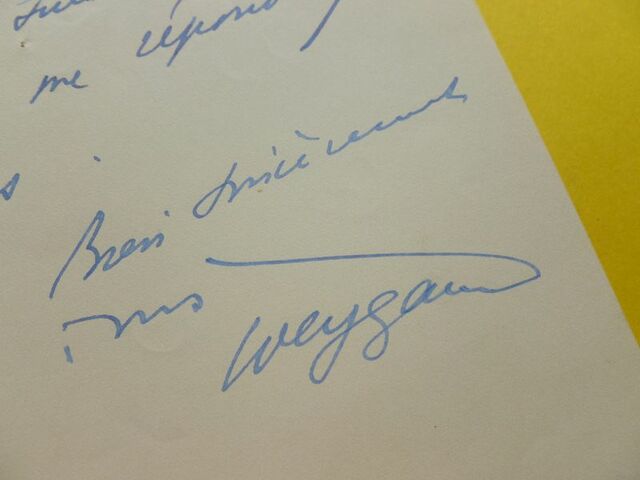 me répond
Bien sincèrement
Weygand